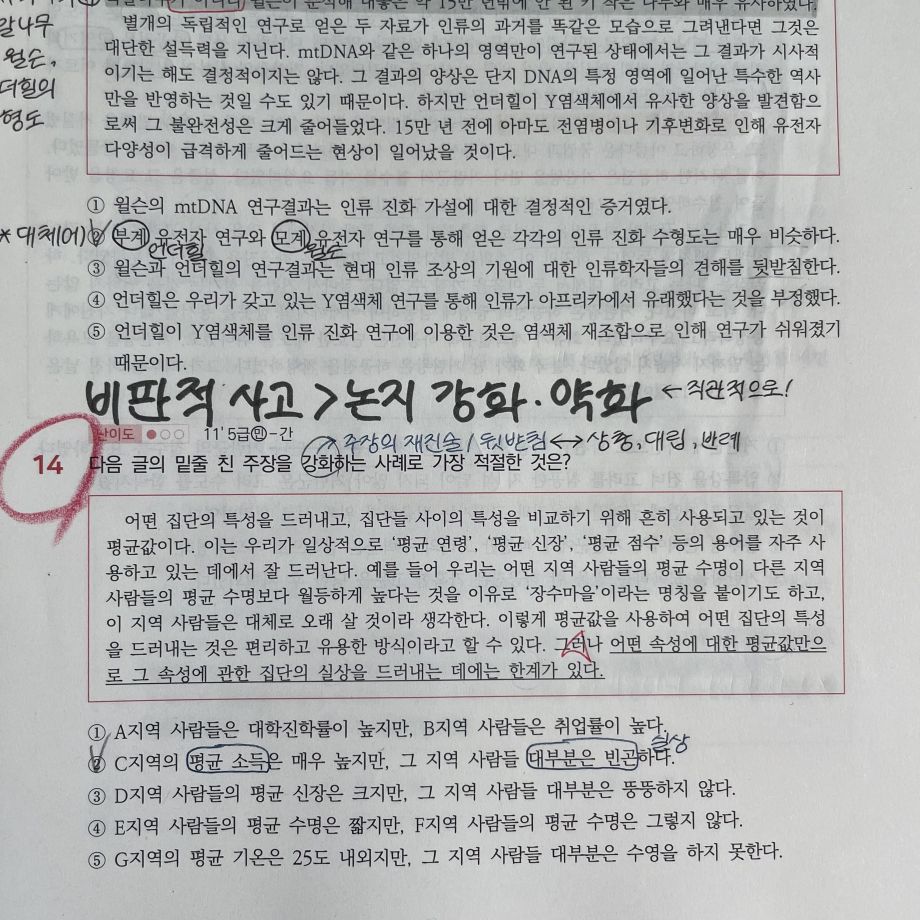 윌슨이 분석해 내놓은 약 15만 년밖에 안 된 키 작은 나무와 매우 유사하였다.
별개의 독립적인 연구로 얻은 두 자료가 인류의 과거를 똑같은 모습으로 그려낸다면 그것은
대단한 설득력을 지닌다. mtDNA와 같은 하나의 영역만이 연구된 상태에서는 그 결과가 시사적
이기는 해도 결정적이지는 않다. 그 결과의 양상은 단지 DNA의 특정 영역에 일어난 특수한 역사
만을 반영하는 것일 수도 있기 때문이다. 하지만 언더힐이 Y염색체에서 유사한 양상을 발견함으
로써 그 불완전성은 크게 줄어들었다. 15만 년 전에 아마도 전염병이나 기후변화로 인해 유전자
다양성이 급격하게 줄어드는 현상이 일어났을 것이다.
갈나무
윌슨,
더힐의
형도
① 윌슨의 mtDNA 연구결과는 인류 진화 가설에 대한 결정적인 증거였다.
* 대체(어) ② 부계 유전자 연구와 모계 유전자 연구를 통해 얻은 각각의 인류 진화 수형도는 매우 비슷하다.
언더힐 윌슨
③ 윌슨과 언더힐의 연구결과는 현대 인류 조상의 기원에 대한 인류학자들의 견해를 뒷받침한다.
④ 언더힐은 우리가 갖고 있는 Y염색체 연구를 통해 인류가 아프리카에서 유래했다는 것을 부정했다.
⑤ 언더힐이 Y염색체를 인류 진화 연구에 이용한 것은 염색체 재조합으로 인해 연구가 쉬워졌기
때문이다.
비판적 사고 > 논지 강화·약화 ← 직관적으로!
난이도 ●○○ 11'5급㉫-간
↗ 주장의 재진술 / 뒷받침 ↔ 상충, 대립, 반례
14 다음 글의 밑줄 친 주장을 강화하는 사례로 가장 적절한 것은?
어떤 집단의 특성을 드러내고, 집단들 사이의 특성을 비교하기 위해 흔히 사용되고 있는 것이
평균값이다. 이는 우리가 일상적으로 ‘평균 연령’, ‘평균 신장’, ‘평균 점수’ 등의 용어를 자주 사
용하고 있는 데에서 잘 드러난다. 예를 들어 우리는 어떤 지역 사람들의 평균 수명이 다른 지역
사람들의 평균 수명보다 월등하게 높다는 것을 이유로 ‘장수마을’이라는 명칭을 붙이기도 하고,
이 지역 사람들은 대체로 오래 살 것이라 생각한다. 이렇게 평균값을 사용하여 어떤 집단의 특성
을 드러내는 것은 편리하고 유용한 방식이라고 할 수 있다. 그러나 어떤 속성에 대한 평균값만으
로 그 속성에 관한 집단의 실상을 드러내는 데에는 한계가 있다.
① A지역 사람들은 대학진학률이 높지만, B지역 사람들은 취업률이 높다.
실상
② C지역의 평균 소득은 매우 높지만, 그 지역 사람들 대부분은 빈곤하다.
③ D지역 사람들의 평균 신장은 크지만, 그 지역 사람들 대부분은 뚱뚱하지 않다.
④ E지역 사람들의 평균 수명은 짧지만, F지역 사람들의 평균 수명은 그렇지 않다.
⑤ G지역의 평균 기온은 25도 내외지만, 그 지역 사람들 대부분은 수영을 하지 못한다.